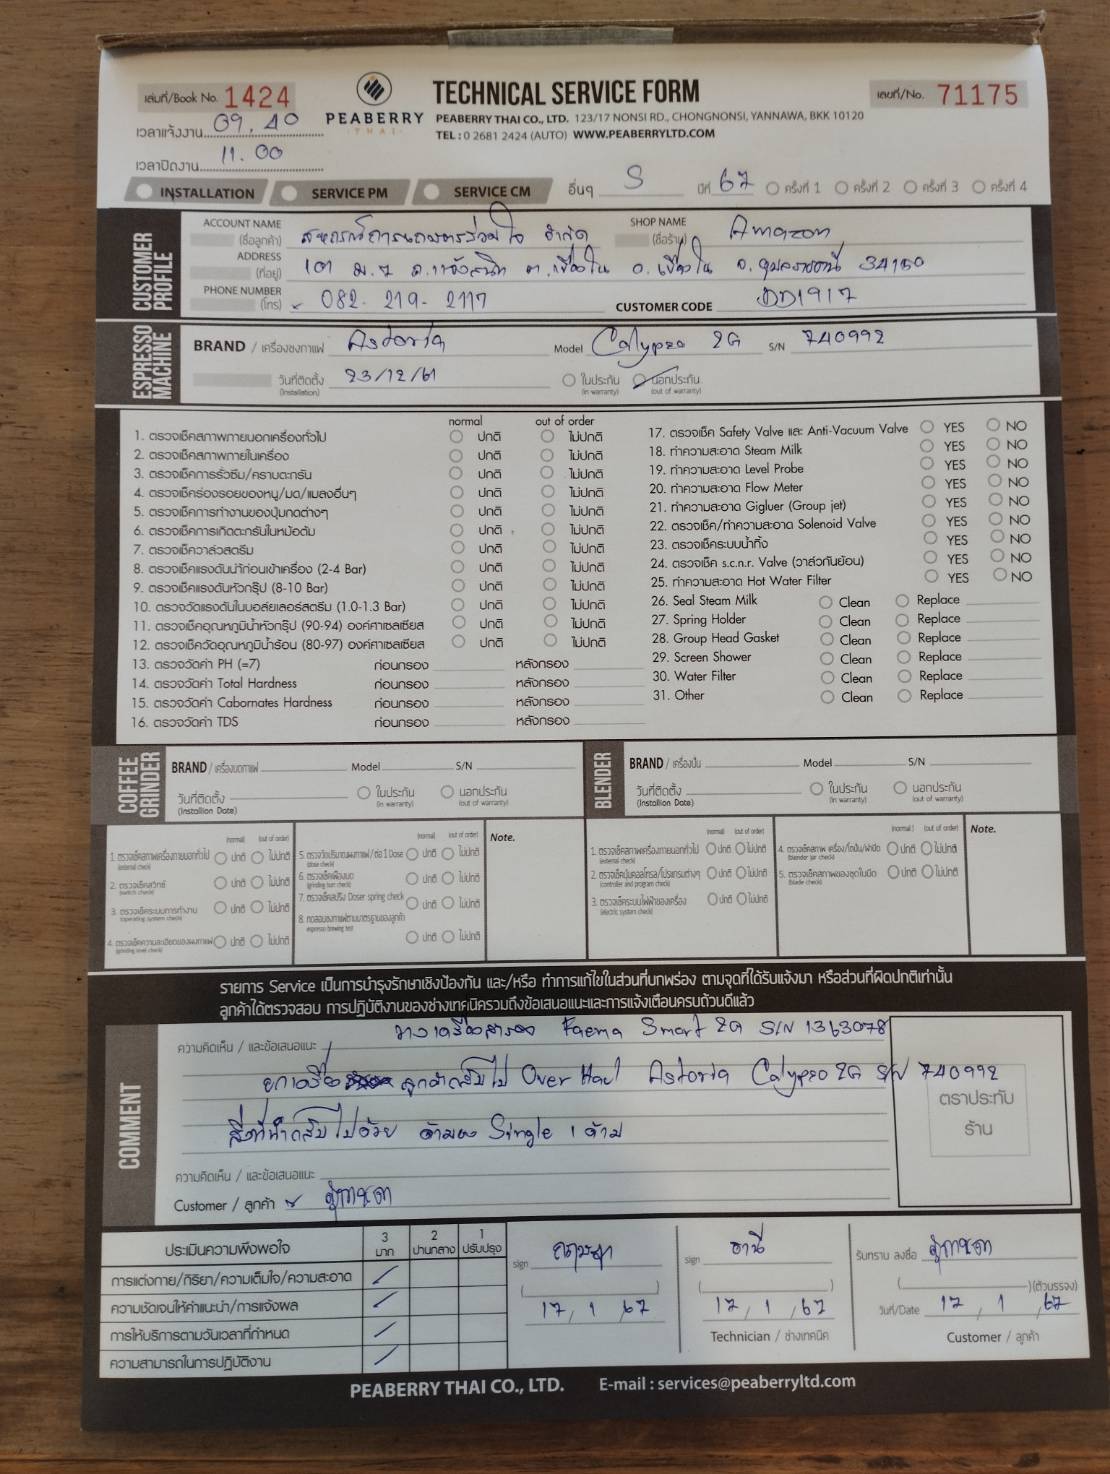 เล่มที่/Book No. 1424
เวลาแจ้งงาน 09.40
เวลาปิดงาน 11.00
PEABERRY
THAI
TECHNICAL SERVICE FORM
PEABERRY THAI CO., LTD. 123/17 NONSI RD., CHONGNONSI, YANNAWA, BKK 10120
TEL : 0 2681 2424 (AUTO) WWW.PEABERRYLTD.COM
เลขที่/No. 71175
INSTALLATION SERVICE PM SERVICE CM อื่นๆ S ปีที่ 67 ครั้งที่ 1 ครั้งที่ 2 ครั้งที่ 3 ครั้งที่ 4
CUSTOMER PROFILE
ACCOUNT NAME (ชื่อลูกค้า) สหกรณ์การเกษตรร่วมใจ จำกัด SHOP NAME (ชื่อร้าน) Amazon
ADDRESS (ที่อยู่) ม.7 ต.เขื่องใน อ.เขื่องใน จ.อุบลราชธานี 34150
PHONE NUMBER (โทร) 082-219-2117 CUSTOMER CODE DD1917
ESPRESSO MACHINE
BRAND / เครื่องชงกาแฟ Astoria Model Calypso 2G S/N 740992
วันที่ติดตั้ง (Installation) 23/12/61 ในประกัน (in warranty) นอกประกัน (out of warranty)
normal out of order
1. ตรวจเช็คสภาพภายนอกเครื่องทั่วไป ปกติ ไม่ปกติ
2. ตรวจเช็คสภาพภายในเครื่อง ปกติ ไม่ปกติ
3. ตรวจเช็คการรั่วซึม/คราบตะกรัน ปกติ ไม่ปกติ
4. ตรวจเช็คร่องรอยของหนู/มด/แมลงอื่นๆ ปกติ ไม่ปกติ
5. ตรวจเช็คการทำงานของปุ่มกดต่างๆ ปกติ ไม่ปกติ
6. ตรวจเช็คการเกิดตะกรันในหม้อต้ม ปกติ ไม่ปกติ
7. ตรวจเช็ควาล์วสตรีม ปกติ ไม่ปกติ
8. ตรวจเช็คแรงดันน้ำก่อนเข้าเครื่อง (2-4 Bar) ปกติ ไม่ปกติ
9. ตรวจเช็คแรงดันหัวกรุ๊ป (8-10 Bar) ปกติ ไม่ปกติ
10. ตรวจวัดแรงดันในบอล์ยเลอร์สตรีม (1.0-1.3 Bar) ปกติ ไม่ปกติ
11. ตรวจเช็คอุณหภูมิน้ำหัวกรุ๊ป (90-94) องศาเซลเซียส ปกติ ไม่ปกติ
12. ตรวจเช็ควัดอุณหภูมิน้ำร้อน (80-97) องศาเซลเซียส ปกติ ไม่ปกติ
13. ตรวจวัดค่า PH (=7) ก่อนกรอง หลังกรอง
14. ตรวจวัดค่า Total Hardness ก่อนกรอง หลังกรอง
15. ตรวจวัดค่า Cabornates Hardness ก่อนกรอง หลังกรอง
16. ตรวจวัดค่า TDS ก่อนกรอง หลังกรอง
17. ตรวจเช็ค Safety Valve และ Anti-Vacuum Valve YES NO
18. ทำความสะอาด Steam Milk YES NO
19. ทำความสะอาด Level Probe YES NO
20. ทำความสะอาด Flow Meter YES NO
21. ทำความสะอาด Gigluer (Group jet) YES NO
22. ตรวจเช็ค/ทำความสะอาด Solenoid Valve YES NO
23. ตรวจเช็คระบบน้ำทิ้ง YES NO
24. ตรวจเช็ค s.c.n.r. Valve (วาล์วกันย้อน) YES NO
25. ทำความสะอาด Hot Water Filter YES NO
26. Seal Steam Milk Clean Replace
27. Spring Holder Clean Replace
28. Group Head Gasket Clean Replace
29. Screen Shower Clean Replace
30. Water Filter Clean Replace
31. Other Clean Replace
COFFEE GRINDER
BRAND / เครื่องบดกาแฟ Model S/N
วันที่ติดตั้ง (Installion Date) ในประกัน (in warranty) นอกประกัน (out of warranty)
(normal) (out of order) (normal) (out of order) Note.
1. ตรวจเช็คสภาพเครื่องภายนอกทั่วไป (external check) ปกติ ไม่ปกติ
2. ตรวจเช็คสวิทซ์ (switch check) ปกติ ไม่ปกติ
3. ตรวจเช็คระบบการทำงาน (operating system check) ปกติ ไม่ปกติ
4. ตรวจเช็คความละเอียดของผงกาแฟ (grinding level check) ปกติ ไม่ปกติ
5. ตรวจวัดปริมาณผงกาแฟ / ต่อ 1 Dose (dose check) ปกติ ไม่ปกติ
6. ตรวจเช็คเฟืองบด (grinding burr check) ปกติ ไม่ปกติ
7. ตรวจเช็คสปริง Doser spring check ปกติ ไม่ปกติ
8. ทดสอบชงกาแฟตามมาตรฐานของลูกค้า espresso brewing test ปกติ ไม่ปกติ
BLENDER
BRAND / เครื่องปั่น Model S/N
วันที่ติดตั้ง (Installion Date) ในประกัน (in warranty) นอกประกัน (out of warranty)
(normal) (out of order) (normal) (out of order) Note.
1. ตรวจเช็คสภาพเครื่องภายนอกทั่วไป (external check) ปกติ ไม่ปกติ
2. ตรวจเช็คปุ่มคอลโทรล/โปรแกรมต่างๆ (controller and program check) ปกติ ไม่ปกติ
3. ตรวจเช็คระบบไฟฟ้าของเครื่อง (electric system check) ปกติ ไม่ปกติ
4. ตรวจเช็คสภาพ เครื่อง/โถปั่น/ฝาปิด (blender jar check) ปกติ ไม่ปกติ
5. ตรวจเช็คสภาพของชุดใบมีด (blade check) ปกติ ไม่ปกติ
รายการ Service เป็นการบำรุงรักษาเชิงป้องกัน และ/หรือ ทำการแก้ไขในส่วนที่บกพร่อง ตามจุดที่ได้รับแจ้งมา หรือส่วนที่ผิดปกติเท่านั้น
ลูกค้าได้ตรวจสอบ การปฏิบัติงานของช่างเทคนิครวมถึงข้อเสนอแนะและการแจ้งเตือนครบถ้วนดีแล้ว
COMMENT
ความคิดเห็น / และข้อเสนอแนะ วางเครื่องสำรอง Faema Smart 2G S/N 1363078
ยกเครื่อง ลูกค้ากลับไป Over Haul Astoria Calypso 2G S/N 740992
สิ่งที่นำกลับไปด้วย ด้ามชง Single 1 ด้าม
ตราประทับ
ร้าน
ความคิดเห็น / และข้อเสนอแนะ
Customer / ลูกค้า
ประเมินความพึงพอใจ 3 มาก 2 ปานกลาง 1 ปรับปรุง
การแต่งกาย/กิริยา/ความเต็มใจ/ความสะอาด
ความชัดเจนให้คำแนะนำ/การแจ้งผล
การให้บริการตามวันเวลาที่กำหนด
ความสามารถในการปฏิบัติงาน
sign
17 / 1 / 67
sign ธานี
17 / 1 / 67
Technician / ช่างเทคนิค
รับทราบ ลงชื่อ
(ตัวบรรจง)
วันที่/Date 17 / 1 / 67
Customer / ลูกค้า
PEABERRY THAI CO., LTD. E-mail : services@peaberryltd.com